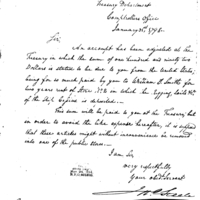 Treasury Department
Comptrollers Office
January 31st 1798.
Sir,
An account has been adjusted at the
Treasury in which the sum of one hundred and ninety two
Dollars is stated to be due from the United States,
being for so much paid by you to William D. Smith for
two years rent of in which the rigging, sails &c.
of the Ship are deposited.
This sum will be paid to you at the Treasury but
in order to avoid the like expense hereafter, it is
that these articles might without inconvenience be removed
into one of the public stores.
I am Sir
very respectfully
your obed. Servant